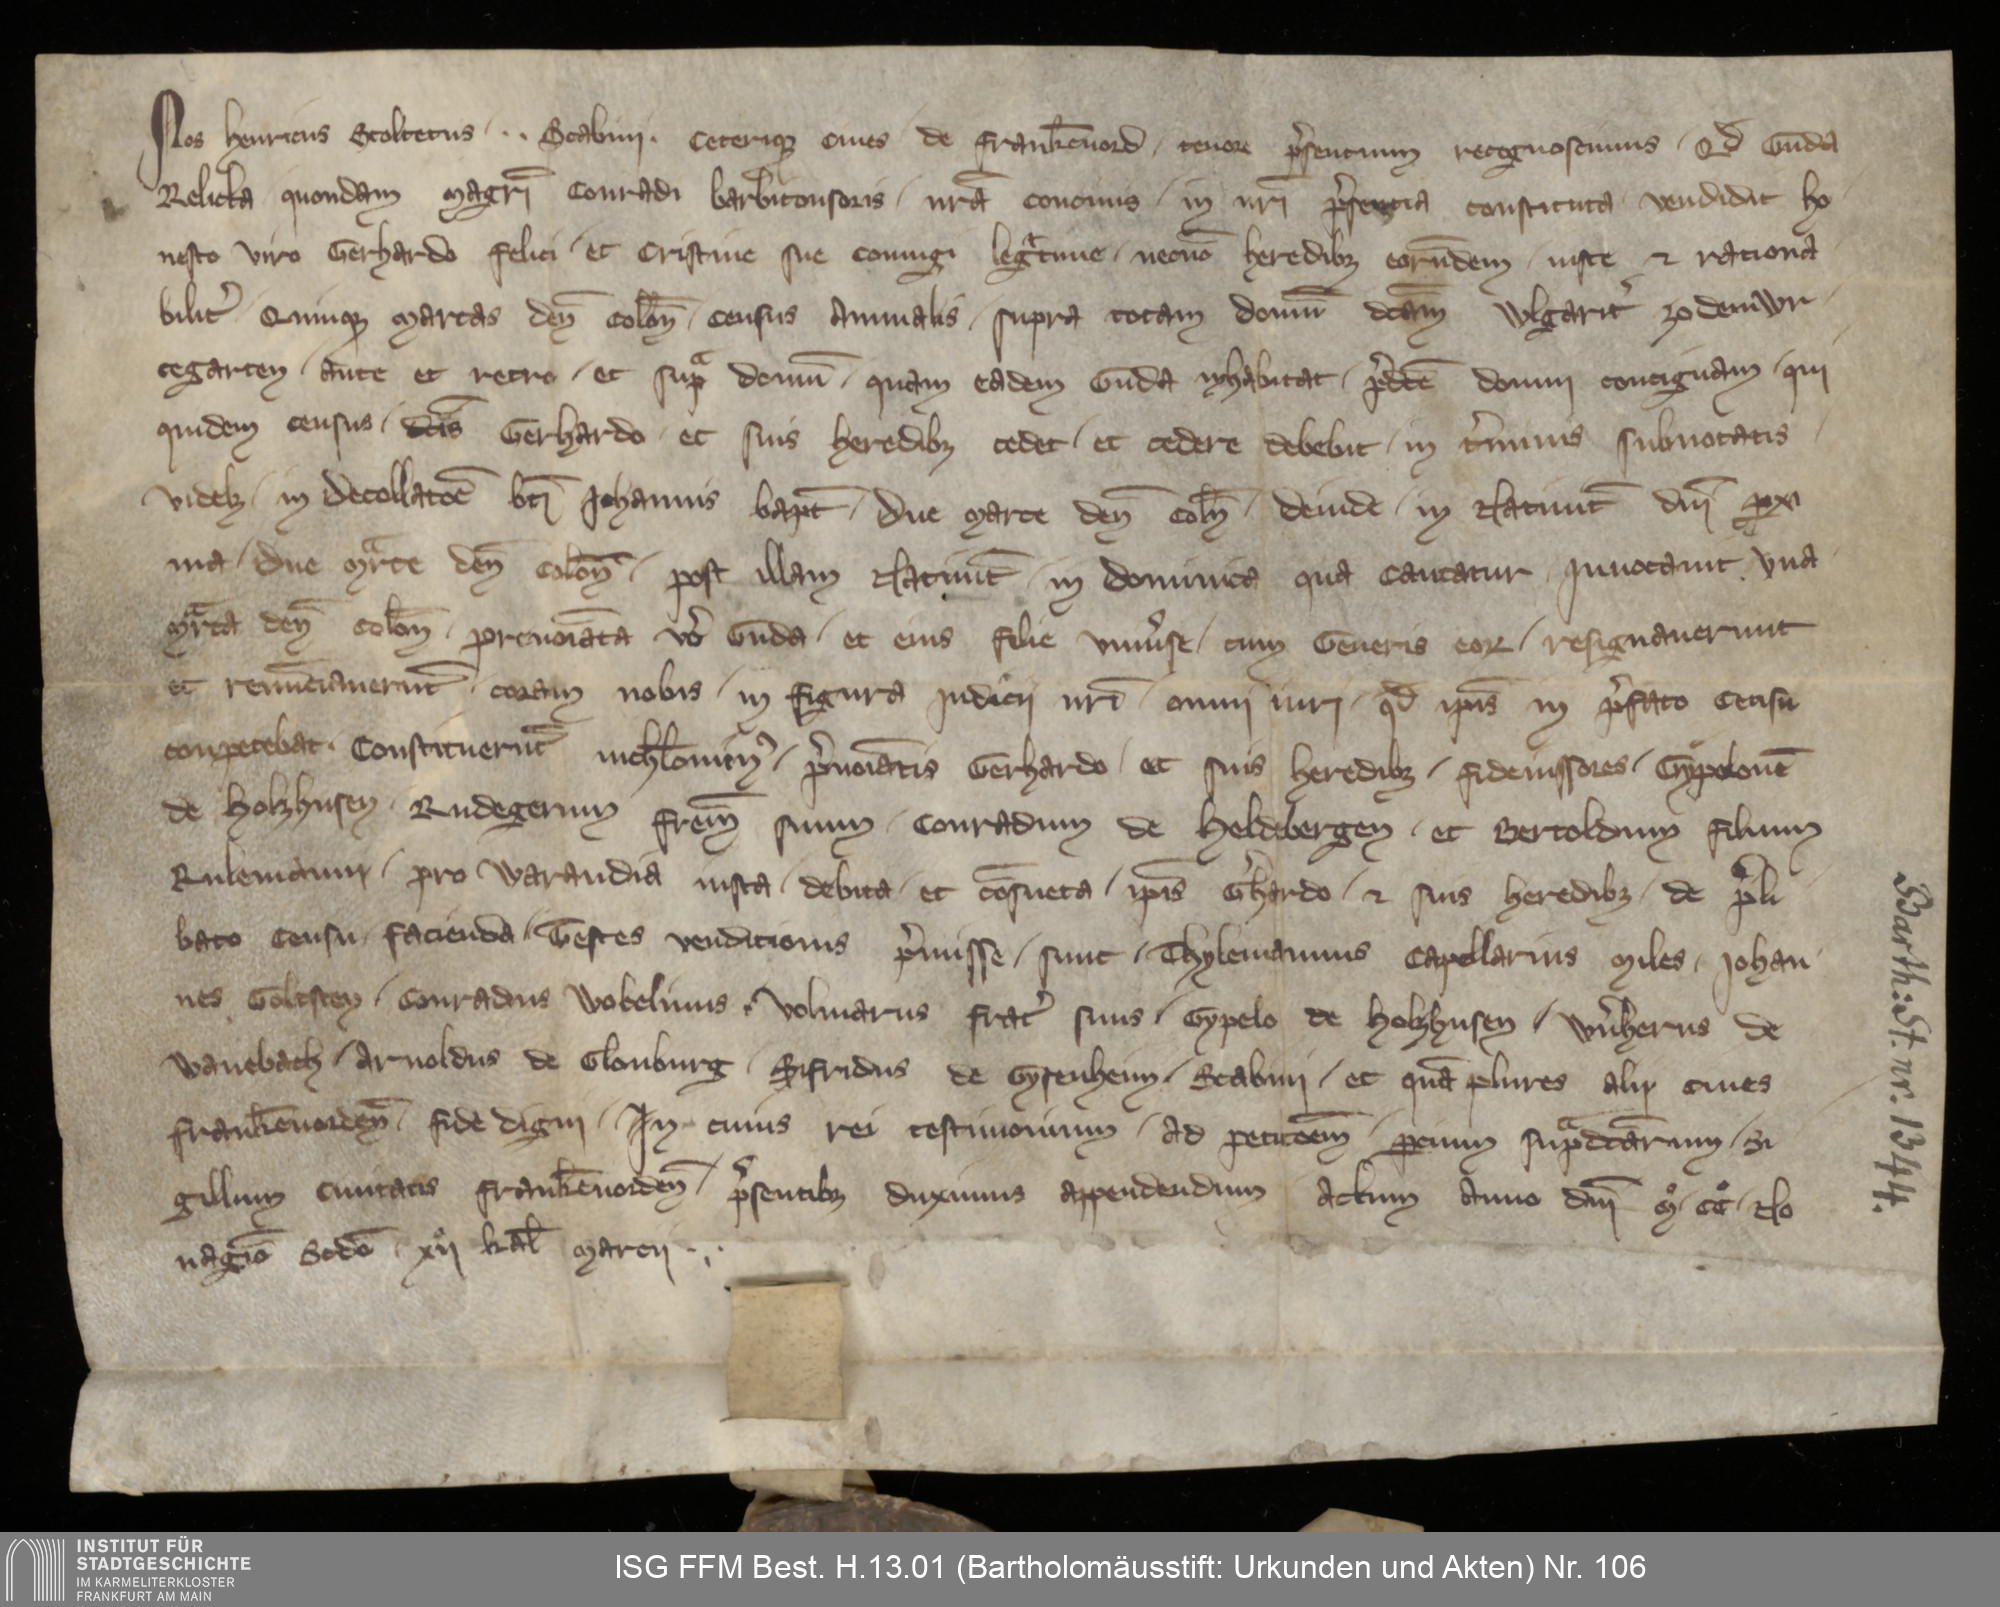 Nos henricus Scoltetus ·. Scabini · Ceteriqz Ciues de Frankēuord / tenore p̄sencium recognoscimus / Qd̄ Guͦda
Relicta quondam mag̃ri Conradi barbitonsoris / nr̄a Conciuis / in nr̄i p̄sencia constituta vendidit ho
nesto viro Gerhardo felici / et Cristine sue coniugi leg̃time / necnō heredibz eorūdem / iuste ⁊ rationa
bilit̾ / Quinqz Marcas deñ Coloñ / Census Annualis / supra totam domū dc̄am wlgarit̾ zo demwr
tegarten / ante et retro / et sup̃ domū / quam eadem Guͦda inhabitat / p̄dc̄e domui contiguam / qui
quidem census / dc̄is Gerhardo et suis heredibz cedet / et cedere debebit / in t̾minis subnotatis /
videlz / in Decollatōe bt̄i Johannis bapt̄ / due marce deñ Colñ / deinde / in Natiuit̄ dn̄i prox
ma / due mr̃ce deñ Coloñ / post illam Natiuit̄ / in dominica qua Cantatur Inuocauit vna
mr̃ca deñ Coloñ / prenoīata v̾o Guͦda / et eius filie vniu̾se / cum Generis eoꝝ / resignauerunt
et renūciauerunt / coram nobis / in figura Judicii nr̄i / omni iuri / qd̄ ip̄is in p̄fato Censu
conpetebat · Constituerunt nichilomin̾ / p̄noīatis Gerhardo et suis heredibz / fideiussores / Gypelonē
de Holzhusen / Rudegerum fr̄em suum / Conradum de Heldebergen / et Bertoldum filium
Rulemanni / pro warandia iusta / debita / et cōsueta / ip̄is G̾hardo / ⁊ suis heredibz / de p̄li
bato Censu / facienda / Testes venditionis p̄misse / sunt / Thylemannus Capellarius miles / Johan
nes Goltsten / Conradus Wobelinus / Volmarus frat̾ suus / Gypelo de Holzhusen / W̾nherus de
Wanebach / Arnoldus de Glouburg / Sifridus de Gysenheim / Scabini / et quā plures alij ciues
Frankēuordeñ / fide digni / In cuius rei testimonium / ad peticōem / parcium sup̃dc̄arum / Si
gillum ciuitatis Frankēuordeñ / p̄sentibz duximus appendendum Actum Anno dn̄i M° CC° No
nag̃io Scdo / xii kal̄ Marcii
Barth: St. nr. 1344.
INSTITUT FÜR
STADTGESCHICHTE
IM KARMELITERKLOSTER
FRANKFURT AM MAIN
ISG FFM Best. H.13.01 (Bartholomäusstift: Urkunden und Akten) Nr. 106